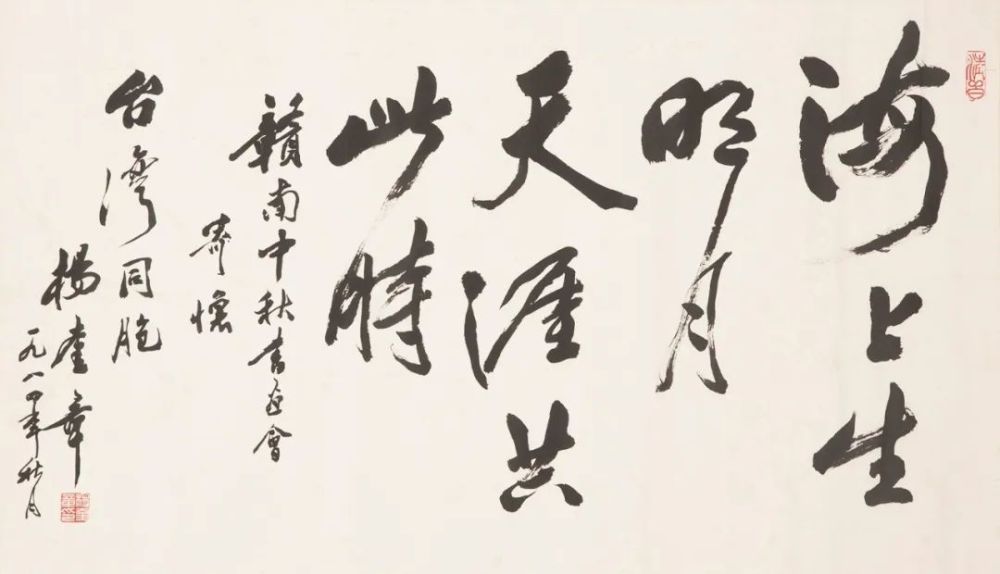 海上生
明月
天涯共
此時
贛南中秋書画會
寄懷
台灣同胞
楊奎章
一九八四年秋月